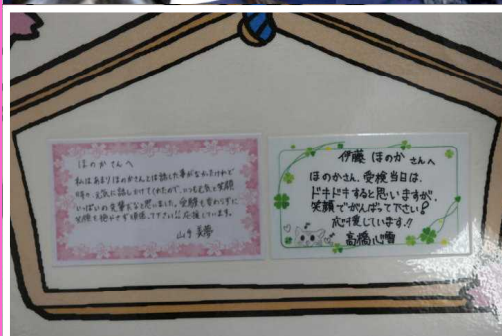 ほのかさんへ
私はあまりほのかさんとは話した事がなかったけれど
時々、元気に話しかけてくれたので、いつも元気と笑顔
いっぱいの先輩だなと思いました。受験も変わらずに
笑顔を絶やさず頑張って下さい!!応援しています。
山本 美夢
伊藤 ほのか さんへ
ほのかさん、受検当日は、
ドキドキすると思いますが、
笑顔でがんばって下さい!
応援しています!!
高橋心雪